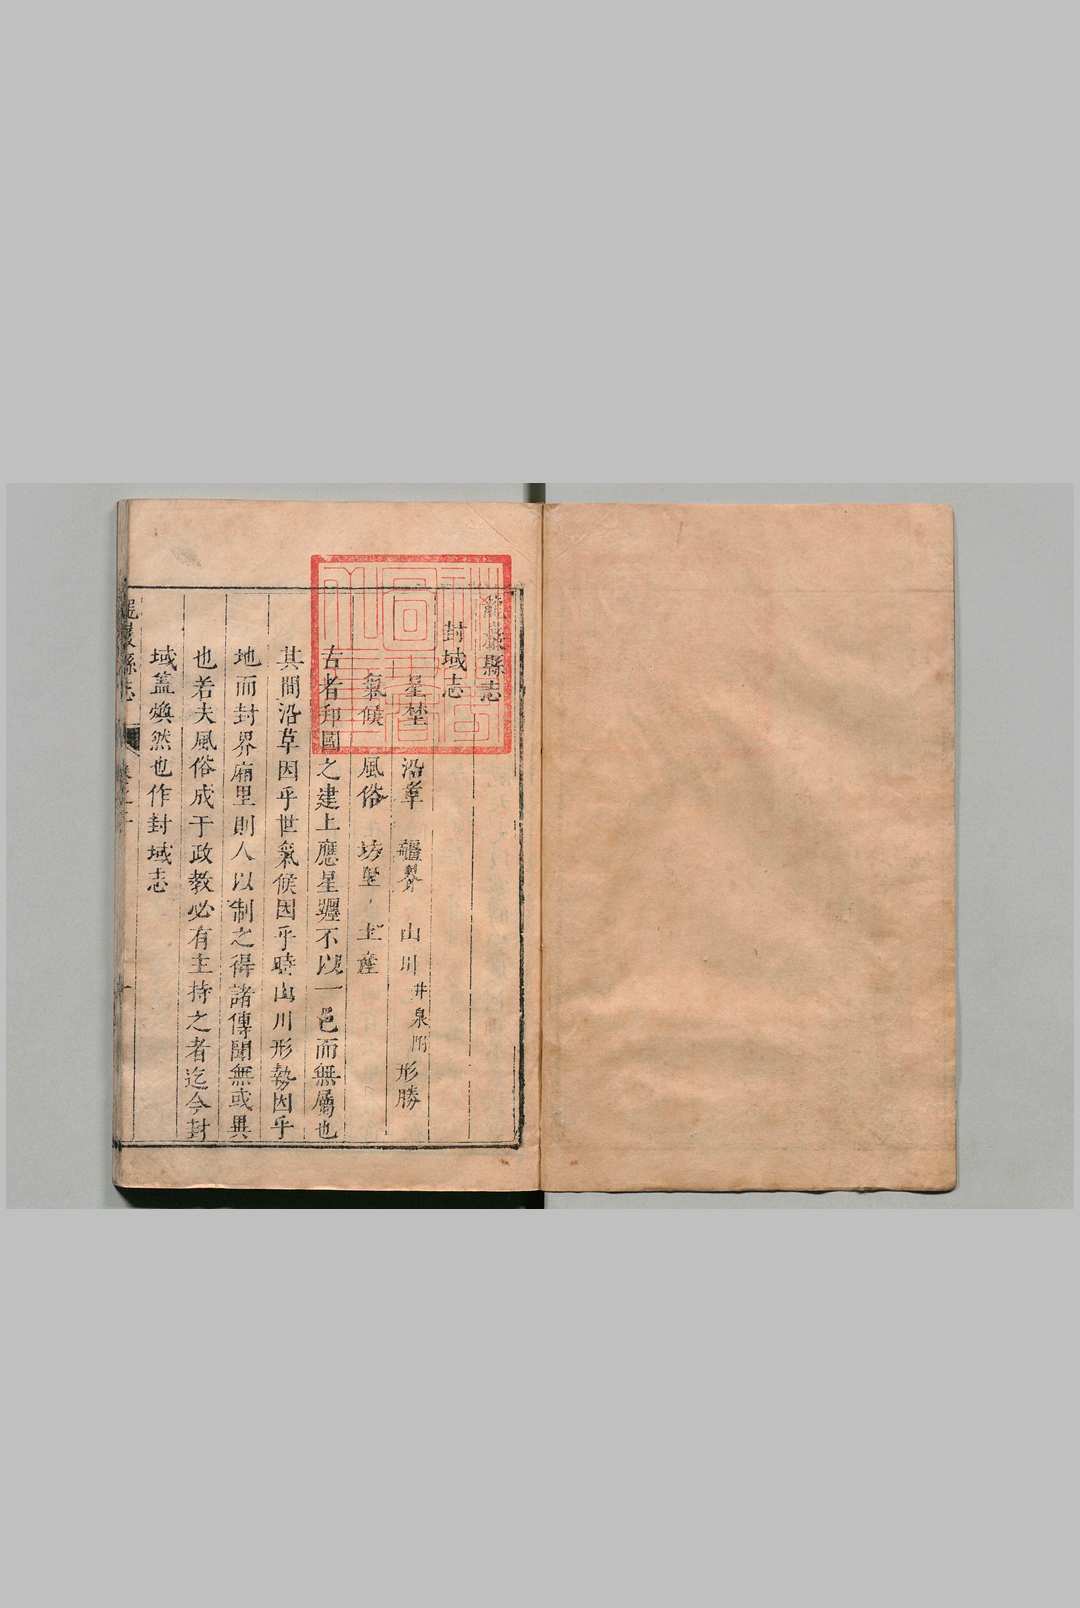 龍巖縣志
封域志
星埜 沿革 疆界 山川井泉附 形勝
氣候 風俗 坊里 土產
古者邦國之建上應星躔不以一邑而無屬也
其間沿革因乎世氣候因乎時山川形勢因乎
地而封界廂里則人以制之得諸傳聞無或異
也若夫風俗成于政教必有主持之者迄今封
域蓋煥然也作封域志
龍巖縣志